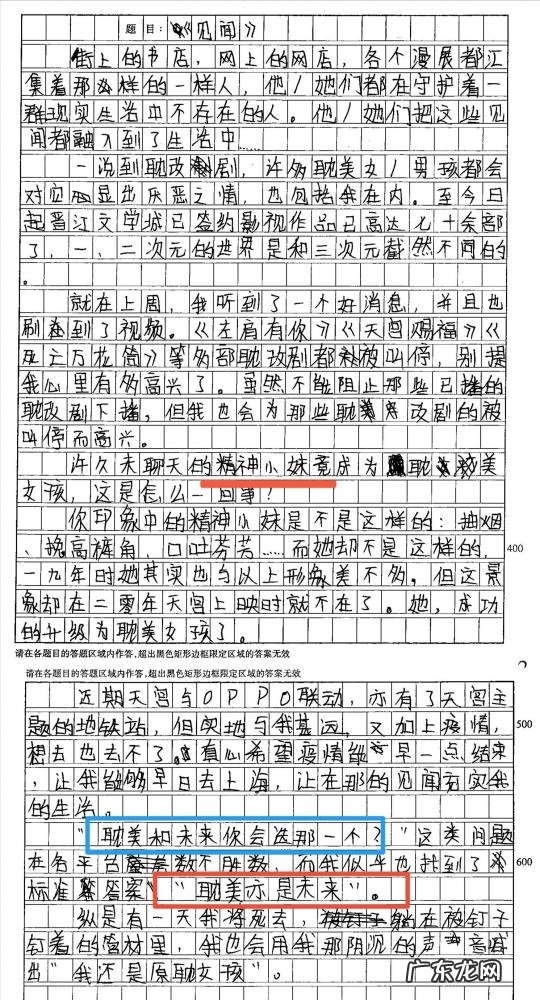 题目：《见闻》
街上的书店，网上的网店，各个漫展都汇
集着那么样的一样人，他/她们都在守护着一
群现实生活中不存在的人。他/她们把这些见
闻都融入到了生活中……
一说到耽改剧，许多耽美女/男孩都会
对应显出厌恶之情，也包括我在内。至今日
起晋江文学城已签约影视作品已高达七十余部
了，一、二次元的世界是和三次元截然不同的
。
就在上周，我听到了一个好消息，并且也
刷到了视频。《左肩有你》《天官赐福》《
死亡万花筒》等多部耽改剧都被叫停，别提
我心里有多高兴了。虽然不能阻止那些已播的
耽改剧下播，但我也会为那些耽美改剧的被
叫停而高兴。
许久未聊天的精神小妹竟成为耽美
女孩，这是怎么一回事？
你印象中的精神小妹是不是这样的：抽烟
、挽高裤角，口吐芬芳……而她却不是这样的，
400
一九年时她其实也与以上形象差不多，但这景
象却在二零年天官上映时就不在了。她，成功
的升级为耽美女孩了。
请在各题目的答题区域内作答，超出黑色矩形边框限定区域的答案无效
请在各题目的答题区域内作答，超出黑色矩形边框限定区域的答案无效
近期天官与OPPO联动，亦有了天官主
题的地铁站，但实地与我甚远，又加上疫情，
500
想去也去不了。真心希望疫情能早一点结束
，让我能够早日去上海，让在那的见闻充实我
的生活。
"耽美和未来你会选那一个？"这类问题
在各平台数不胜数，而我似乎也找到了
600
标准答案"耽美亦是未来"。
纵是有一天我将死去，躺在被钉子
钉着的棺材里，我也会用我那阴沉的声音喊
出"我还是原耽女孩"。
广东龙网